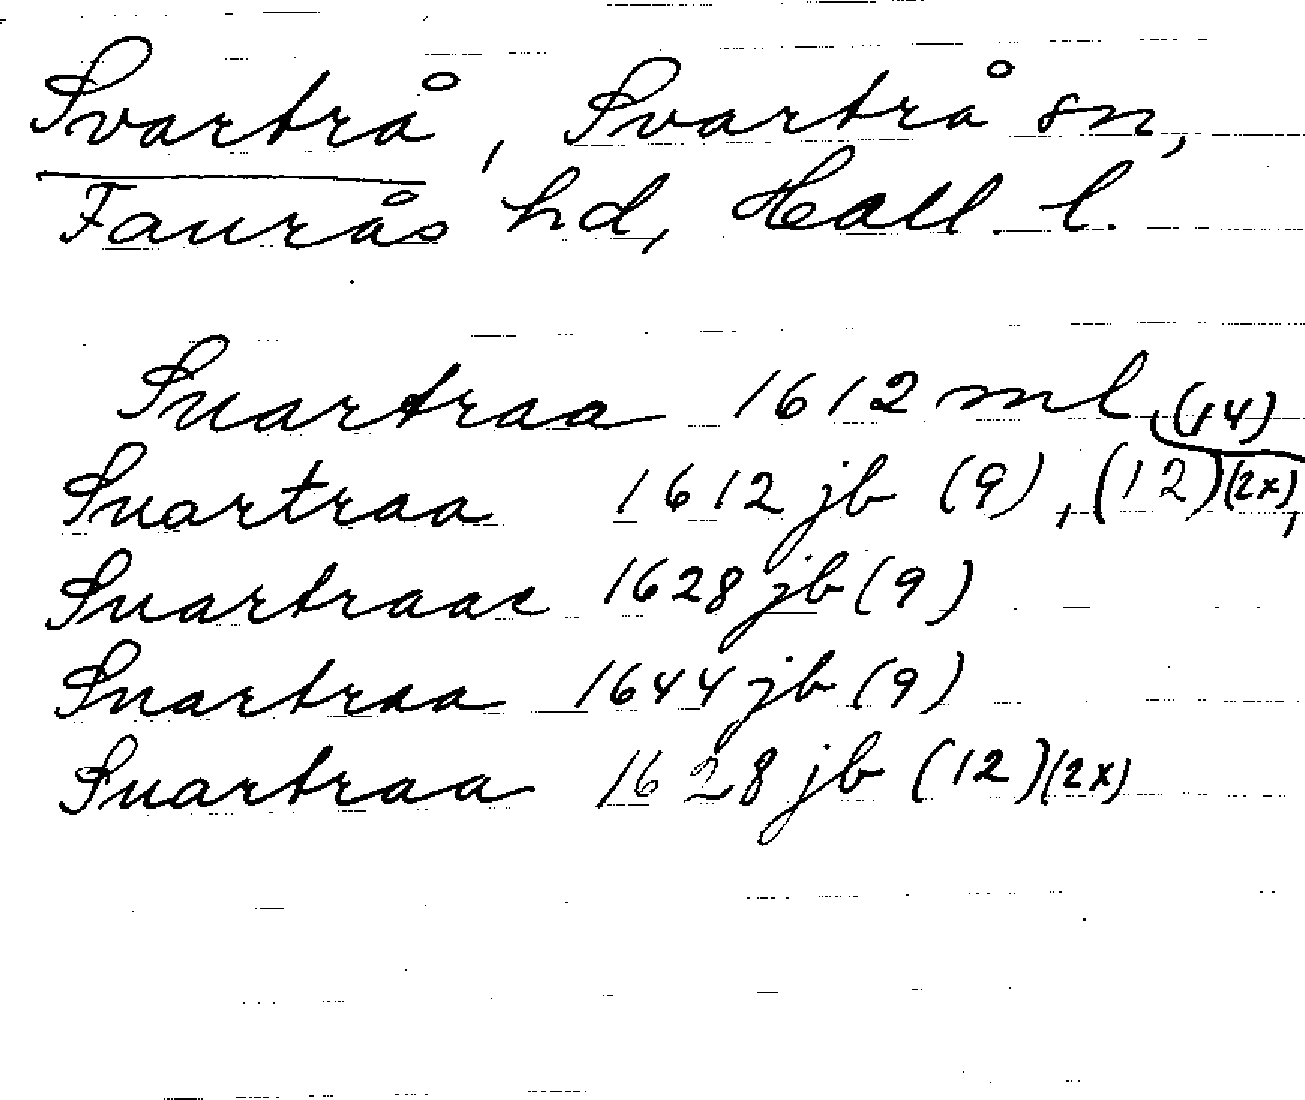 Svartrå, Svartrå sn,
Faurås hd, Hall. l.
Suartraa 1612 ml (14)
Suartraa 1612 jb (9), (12)(2x),
Suartraae 1628 jb (9)
Suartraa 1644 jb (9)
Suartraa 1628 jb (12)(2x)